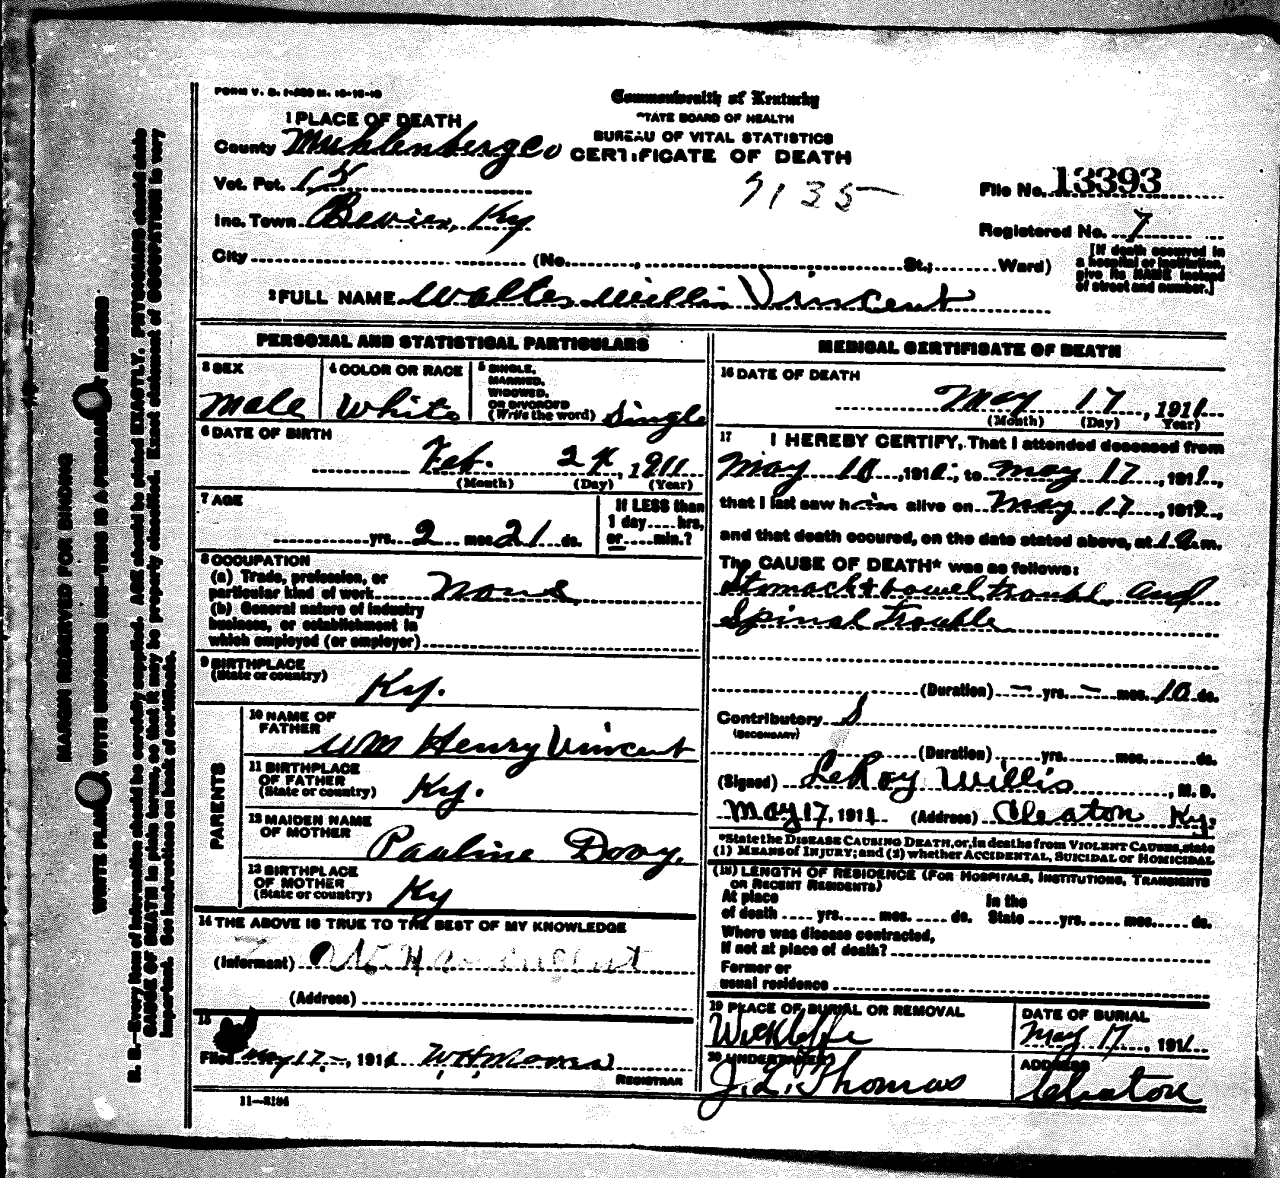 FORM V. S. 1-
Commonwealth of Kentucky
STATE BOARD OF HEALTH
BUREAU OF VITAL STATISTICS
CERTIFICATE OF DEATH
1 PLACE OF DEATH
County Muhlenberg Co
Vot. Pct. 15
Inc. Town Bevier, Ky
City (No. , St.; Ward)
9135
File No. 13393
Registered No. 7
[If death occurred in
a hospital or institution
give its NAME instead
of street and number.]
2 FULL NAME Walter Willis Vincent
PERSONAL AND STATISTICAL PARTICULARS
3 SEX
Male
4 COLOR OR RACE
White
5 SINGLE,
MARRIED,
WIDOWED,
OR DIVORCED
(Write the word) Single
6 DATE OF BIRTH
Feb. , 1911
(Month) (Day) (Year)
7 AGE
yrs. 2 mos. 21 ds.
If LESS than
1 day .... hrs,
or .... min.?
8 OCCUPATION
(a) Trade, profession, or
particular kind of work None
(b) General nature of industry
business, or establishment in
which employed (or employer)
9 BIRTHPLACE
(State or country)
Ky.
PARENTS
10 NAME OF
FATHER
Wm Henry Vincent
11 BIRTHPLACE
OF FATHER
(State or country) Ky.
12 MAIDEN NAME
OF MOTHER
Pauline Dovy.
13 BIRTHPLACE
OF MOTHER
(State or country) Ky
14 THE ABOVE IS TRUE TO THE BEST OF MY KNOWLEDGE
(Informant)
(Address)
15
Filed May 17 , 1911 W. H.
REGISTRAR
11—3184
MEDICAL CERTIFICATE OF DEATH
16 DATE OF DEATH
May 17 , 1911
(Month) (Day) Year)
17 I HEREBY CERTIFY, That I attended deceased from
May 10 , 191 , to May 17 , 1911,
that I last saw him alive on May 17 , 191 ,
and that death occured, on the date stated above, at m.
The CAUSE OF DEATH* was as follows:
Stomach & bowel trouble, and
Spinal Trouble
(Duration) – yrs. – mos. 10 ds.
Contributory
(SECONDARY)
(Duration) yrs. mos. ds.
(Signed) LeRoy Willis , M. D.
May 17, 1911 (Address) Cleaton Ky.
*State the DISEASE CAUSING DEATH, or, in deaths from VIOLENT CAUSES, state
(1) MEANS of INJURY; and (2) whether ACCIDENTAL, SUICIDAL or HOMICIDAL
(18) LENGTH OF RESIDENCE (FOR HOSPITALS, INSTITUTIONS, TRANSIENTS
OR RECENT RESIDENTS)
At place
of death .... yrs. mos. ds.
In the
State .... yrs. mos. ds.
Where was disease contracted,
if not at place of death?
Former or
usual residence
19 PLACE OF BURIAL OR REMOVAL
Wickliffe
DATE OF BURIAL
May 17 , 1911
20 UNDERTAKER
J. L. Thomas
ADDRESS
Cleaton
MARGIN RESERVED FOR BINDING
WRITE PLAINLY, WITH UNFADING INK—THIS IS A PERMANENT RECORD
N. B.—Every item of information should be carefully supplied. AGE should be stated EXACTLY. PHYSICIANS should state
CAUSE OF DEATH in plain terms, so that it may be properly classified. Exact statement of OCCUPATION is very
important. See instructions on back of certificate.